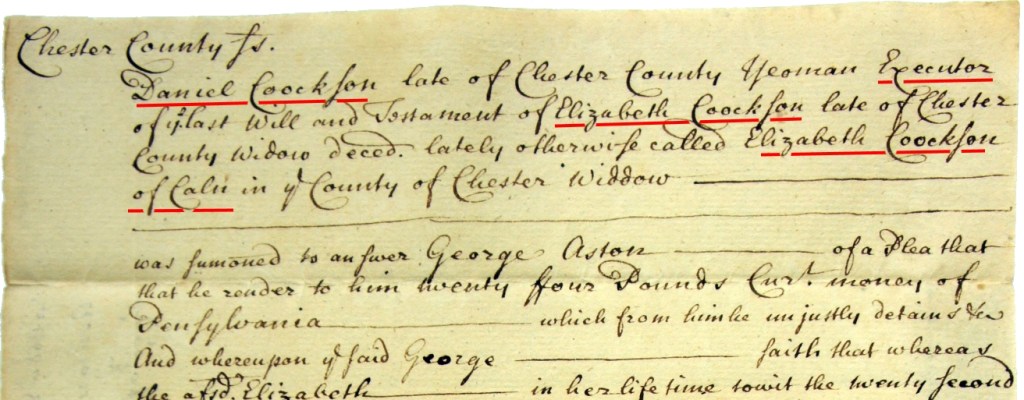 Chester County ſs.
Daniel Coockſon late of Cheſter County Yeoman Executor
of yᵉ last Will and Testament of Elizabeth Coockſon late of Cheſter
County Widow deced. lately otherwiſe called Elizabeth Coockſon
of Caln in yᵉ County of Cheſter Widdow
was ſumoned to anſwer George Aston of a Plea that
that he render to him twenty ffour Pounds Curᵗ. money of
Penſylvania which from him he unjustly detains &c
And whereupon yᵉ ſaid George ſaith that whereas
the afsᵈ. Elizabeth in her life time towit the twenty ſecond